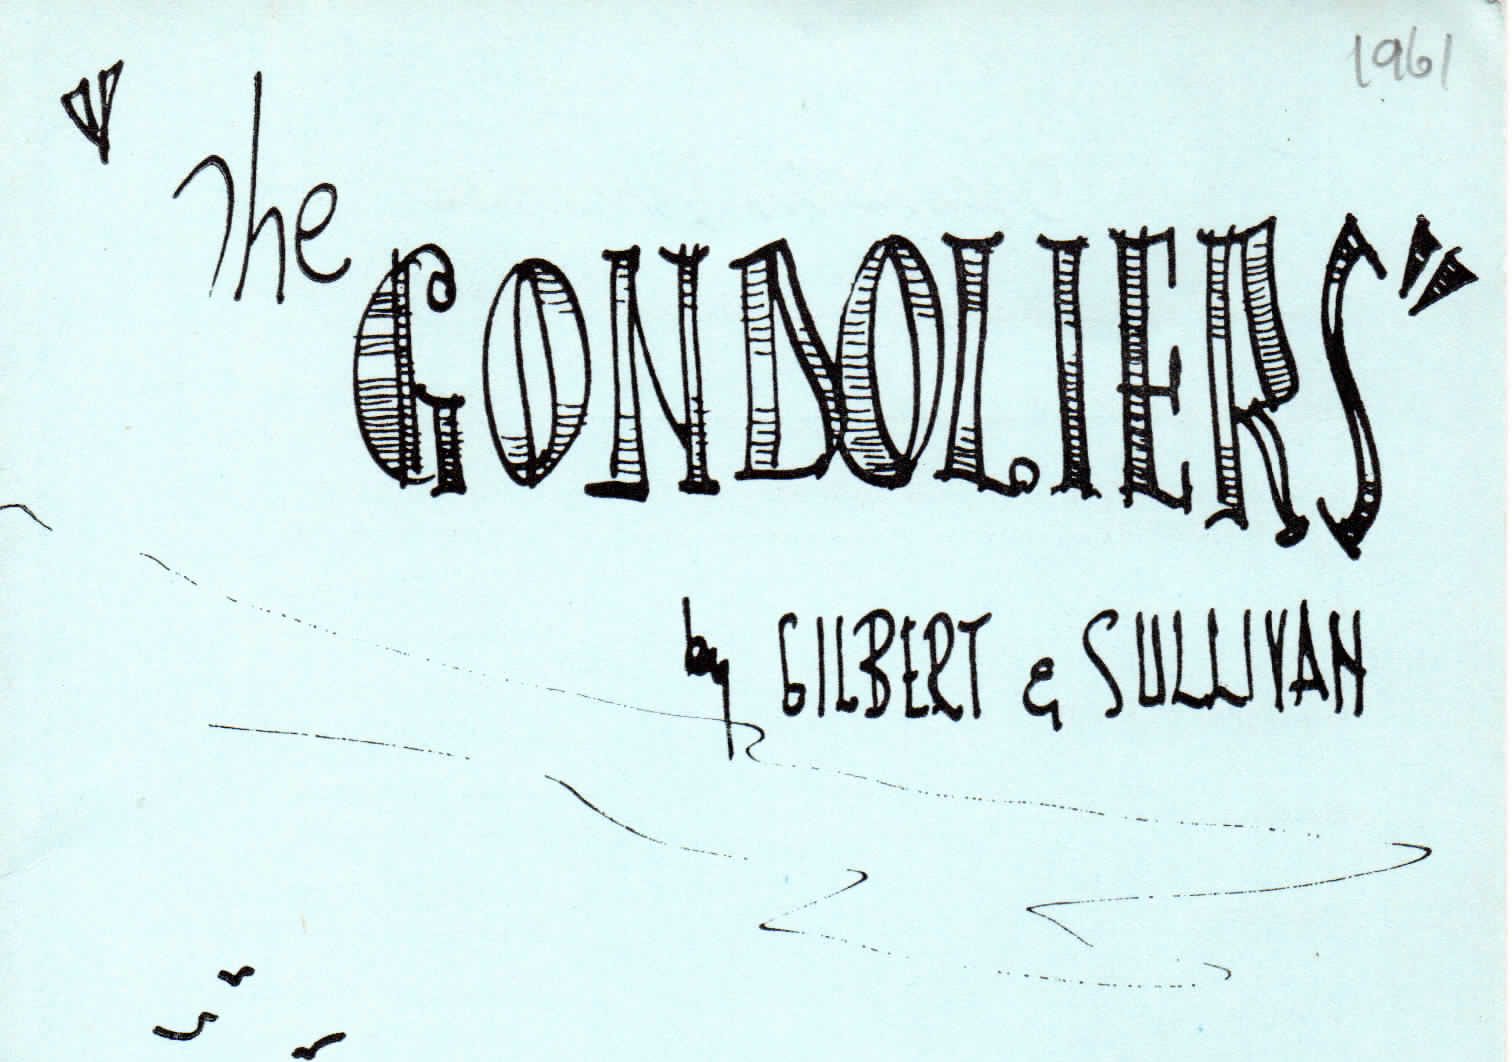 1961
"The
GONDOLIERS"
by GILBERT & SULLIVAN